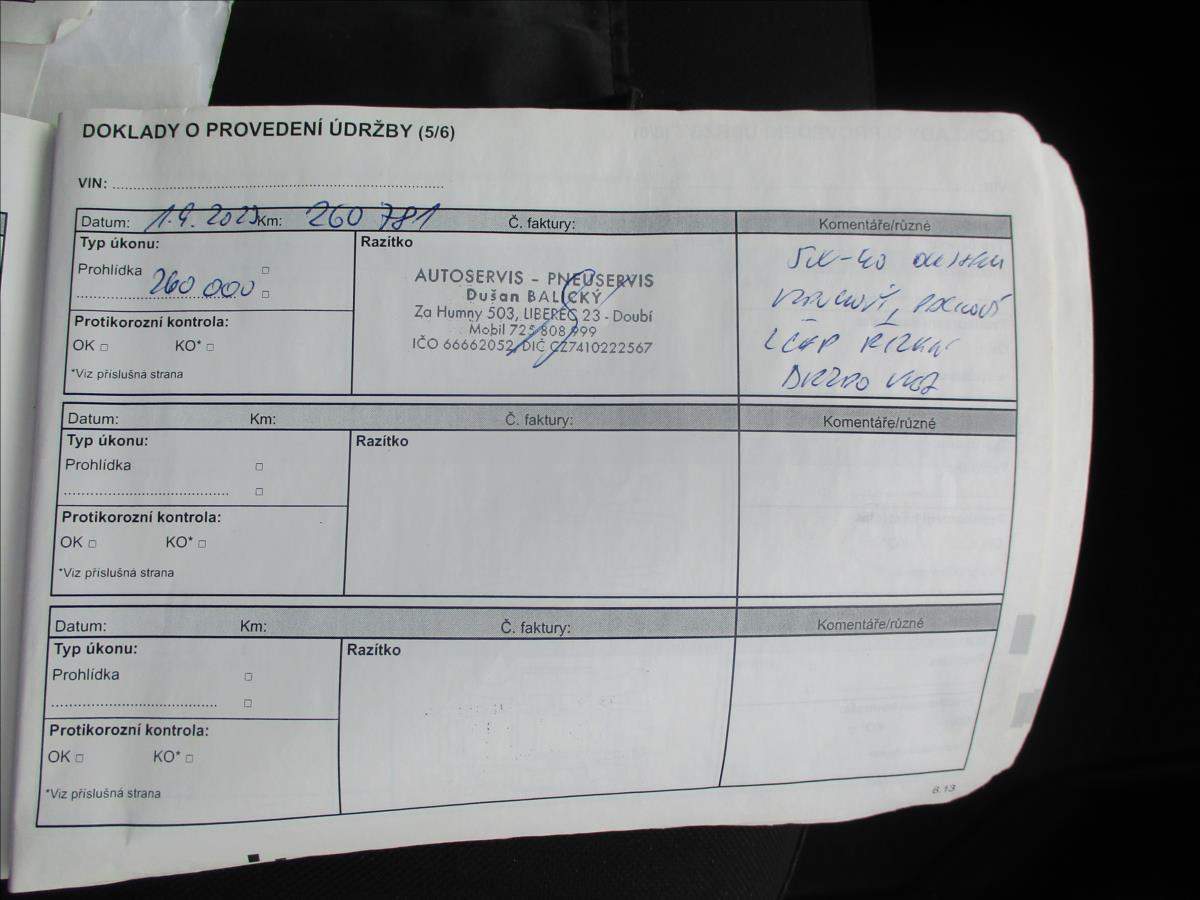 DOKLADY O PROVEDENÍ ÚDRŽBY (5/6)
VIN:
Datum: 1.9. 2023 Km: 260 781 Č. faktury: Komentáře/různé
Typ úkonu: Razítko
Prohlídka
260 000
Protikorozní kontrola:
OK KO*
*Viz příslušná strana
AUTOSERVIS - PNEUSERVIS
Dušan BALICKÝ
Za Humny 503, LIBEREC 23 - Doubí
Mobil 725 808 999
IČO 66662052, DIČ CZ7410222567
5W-40
Datum: Km: Č. faktury: Komentáře/různé
Typ úkonu: Razítko
Prohlídka
Protikorozní kontrola:
OK KO*
*Viz příslušná strana
Datum: Km: Č. faktury: Komentáře/různé
Typ úkonu: Razítko
Prohlídka
Protikorozní kontrola:
OK KO*
*Viz příslušná strana
6.13